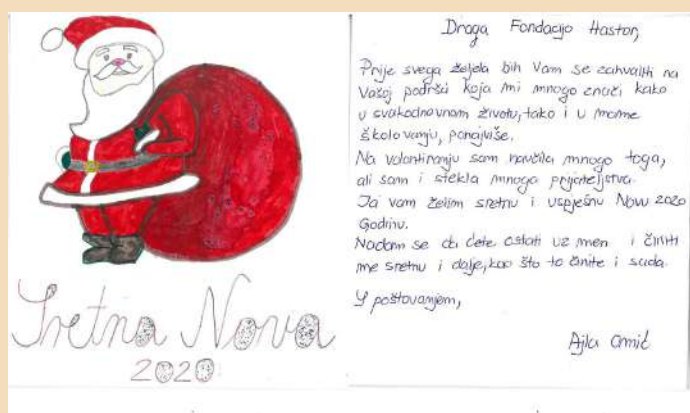 Sretna Nova
2020
Draga Fondacijo Hastor,
Prije svega željela bih Vam se zahvaliti na
Vašoj podršci koja mi mnogo znači kako
u svakodnevnom životu, tako i u mome
školovanju, ponajviše.
Na volontiranju sam naučila mnogo toga,
ali sam i stekla mnoga prijateljstva.
Ja vam želim sretnu i uspješnu Novu 2020
Godinu.
Nadam se da ćete ostati uz men i činiti
me sretnu i dalje, kao što to činite i sada.
S poštovanjem,
Ajla